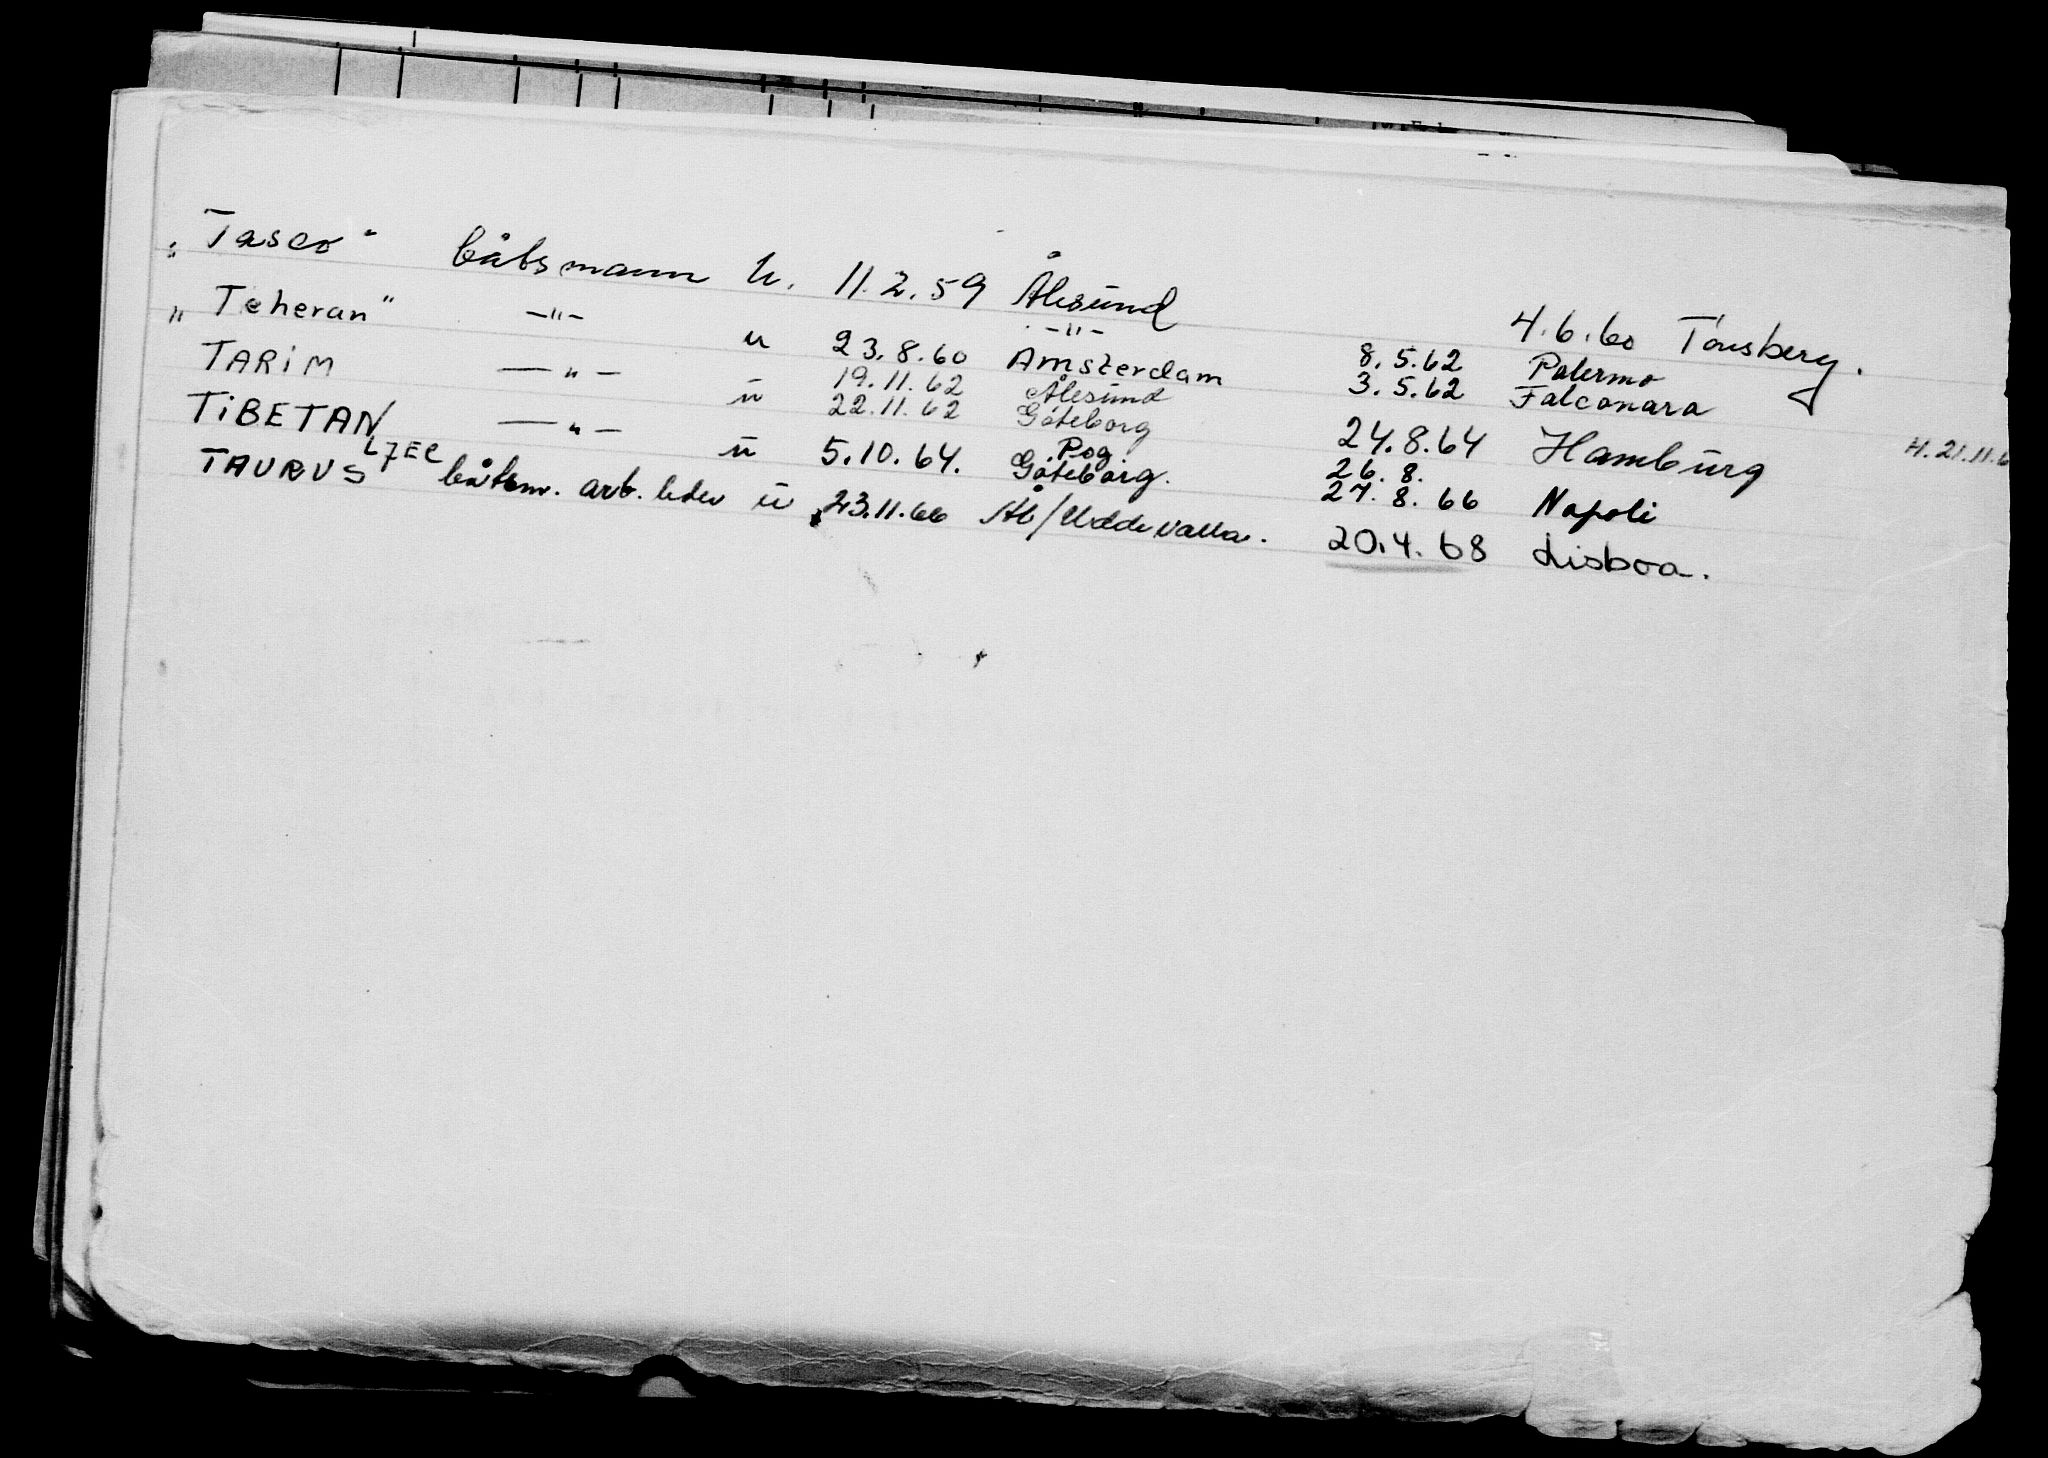 „Tasco" båtsmann u. 11.2.59 Ålesund 4.6.60 Tønsberg.
„Teheran" —"— u 23.8.60 —"— Amsterdam 8.5.62 3.5.62 Palermo Falconara
TARIM —"— u 19.11.62 22.11.62 Ålesund Göteborg 24.8.64 Hamburg H. 21.11.6
TIBETAN —"— u 5.10.64. Pog. Göteborg. 26.8. 27.8.66 Napoli
TAURUS LJEC båtsm. arb. leder u 23.11.66 Ål/Uddevalla. 20.4.68 Lisboa.